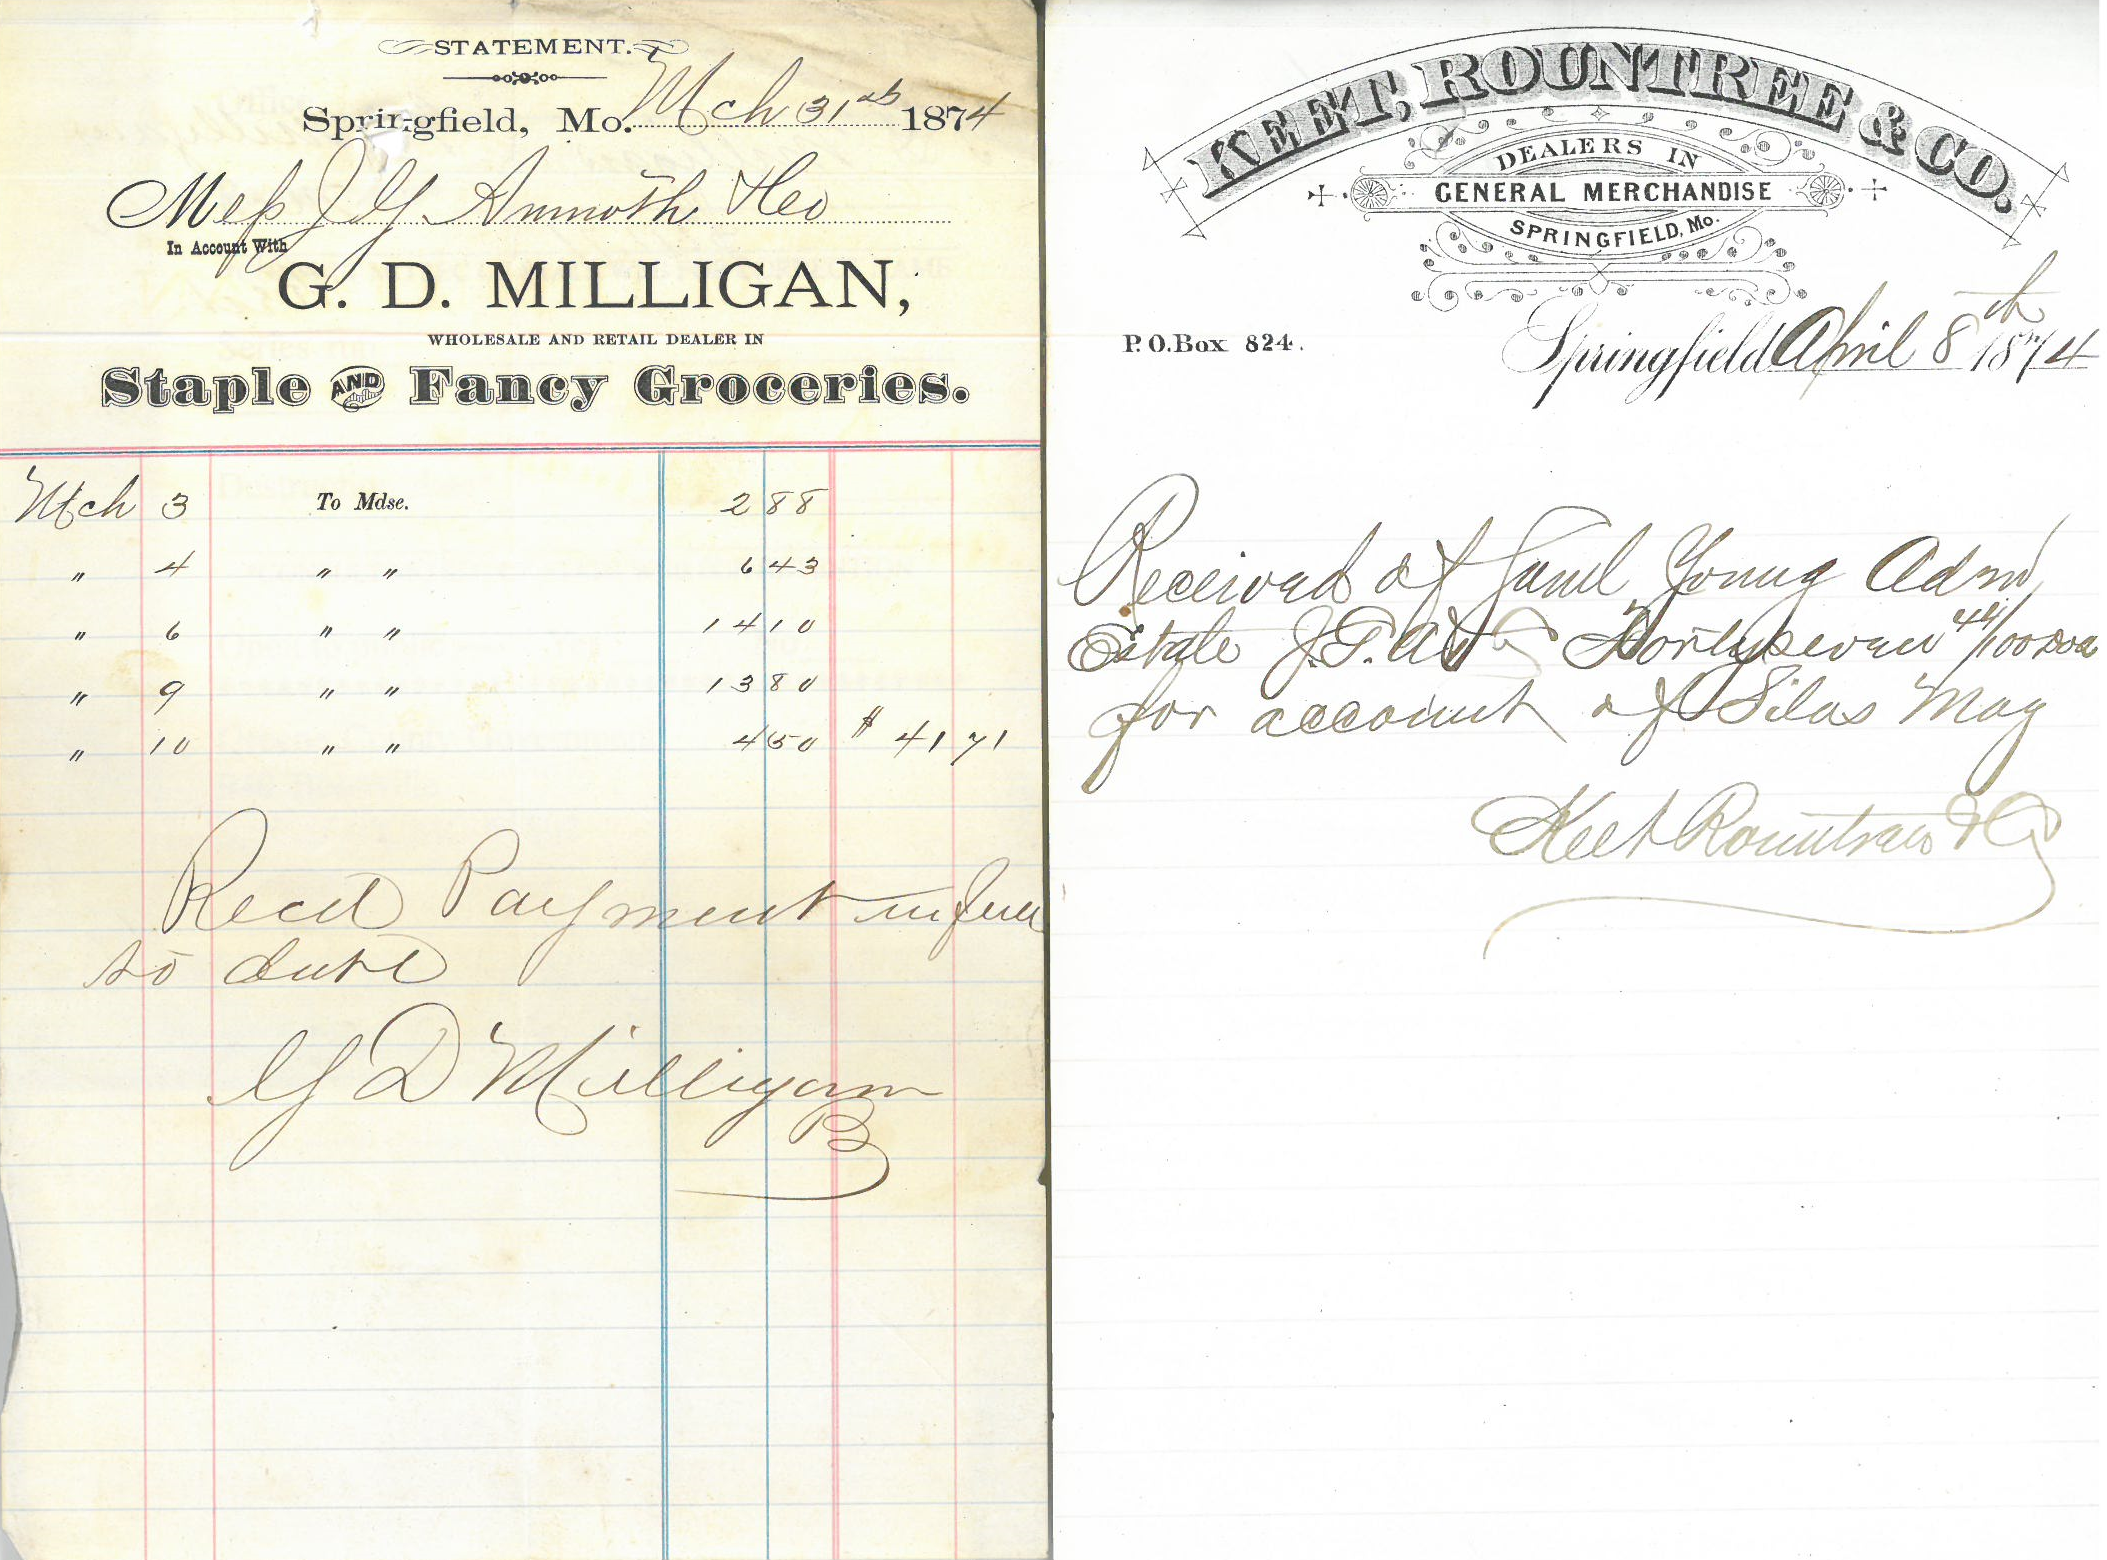 STATEMENT.
Springfield, Mo. Mch 31st 1874
Mess J Y & Co
In Account With
G. D. MILLIGAN,
WHOLESALE AND RETAIL DEALER IN
Staple AND Fancy Groceries.
Mch 3 To Mdse. 2 88
" 4 " " 6 43
" 6 " " 14 10
" 9 " " 13 80
" 10 " " 4 50 $ 41 71
Recd Payment in full
to date
G D Milligan
B
KEET, ROUNTREE & CO.
DEALERS IN
GENERAL MERCHANDISE
SPRINGFIELD, Mo.
P.O. Box 824.
Springfield April 8th 1874
Received of Saml Young Adm
Estate J.T. Fortyseven 44/100
for account of Silas May
Keet Rountree & Co